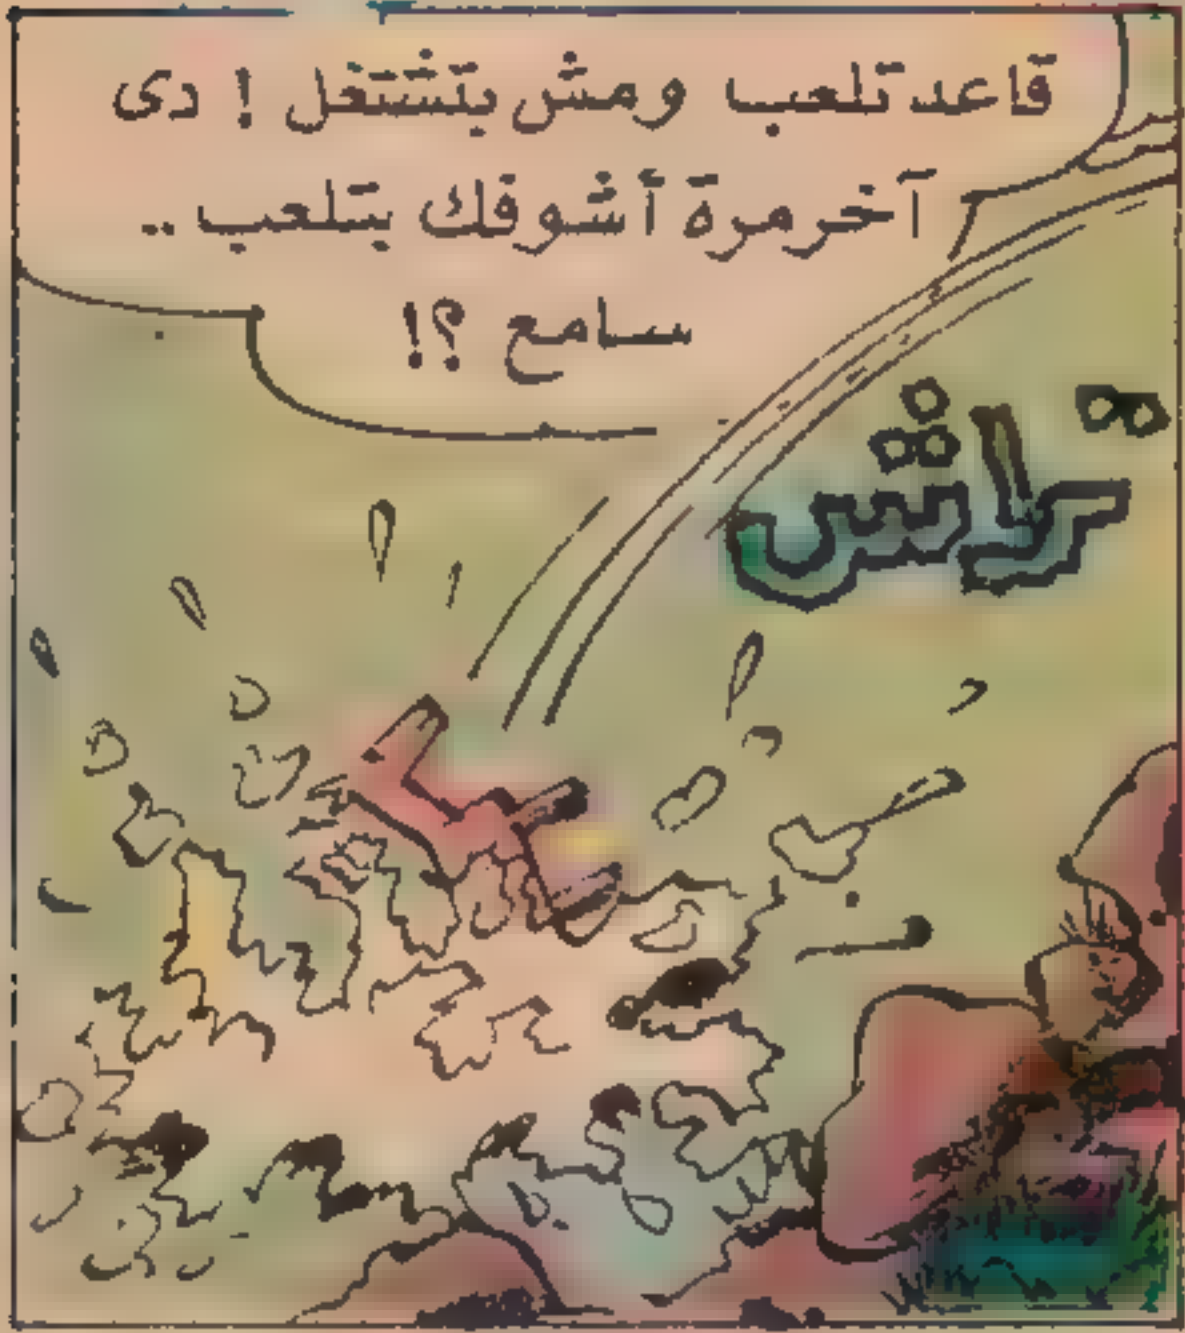 قاعد تلعب ومش بتشتغل ! دى
آخر مرة أشوفك بتلعب ..
سامع ؟!
تراش